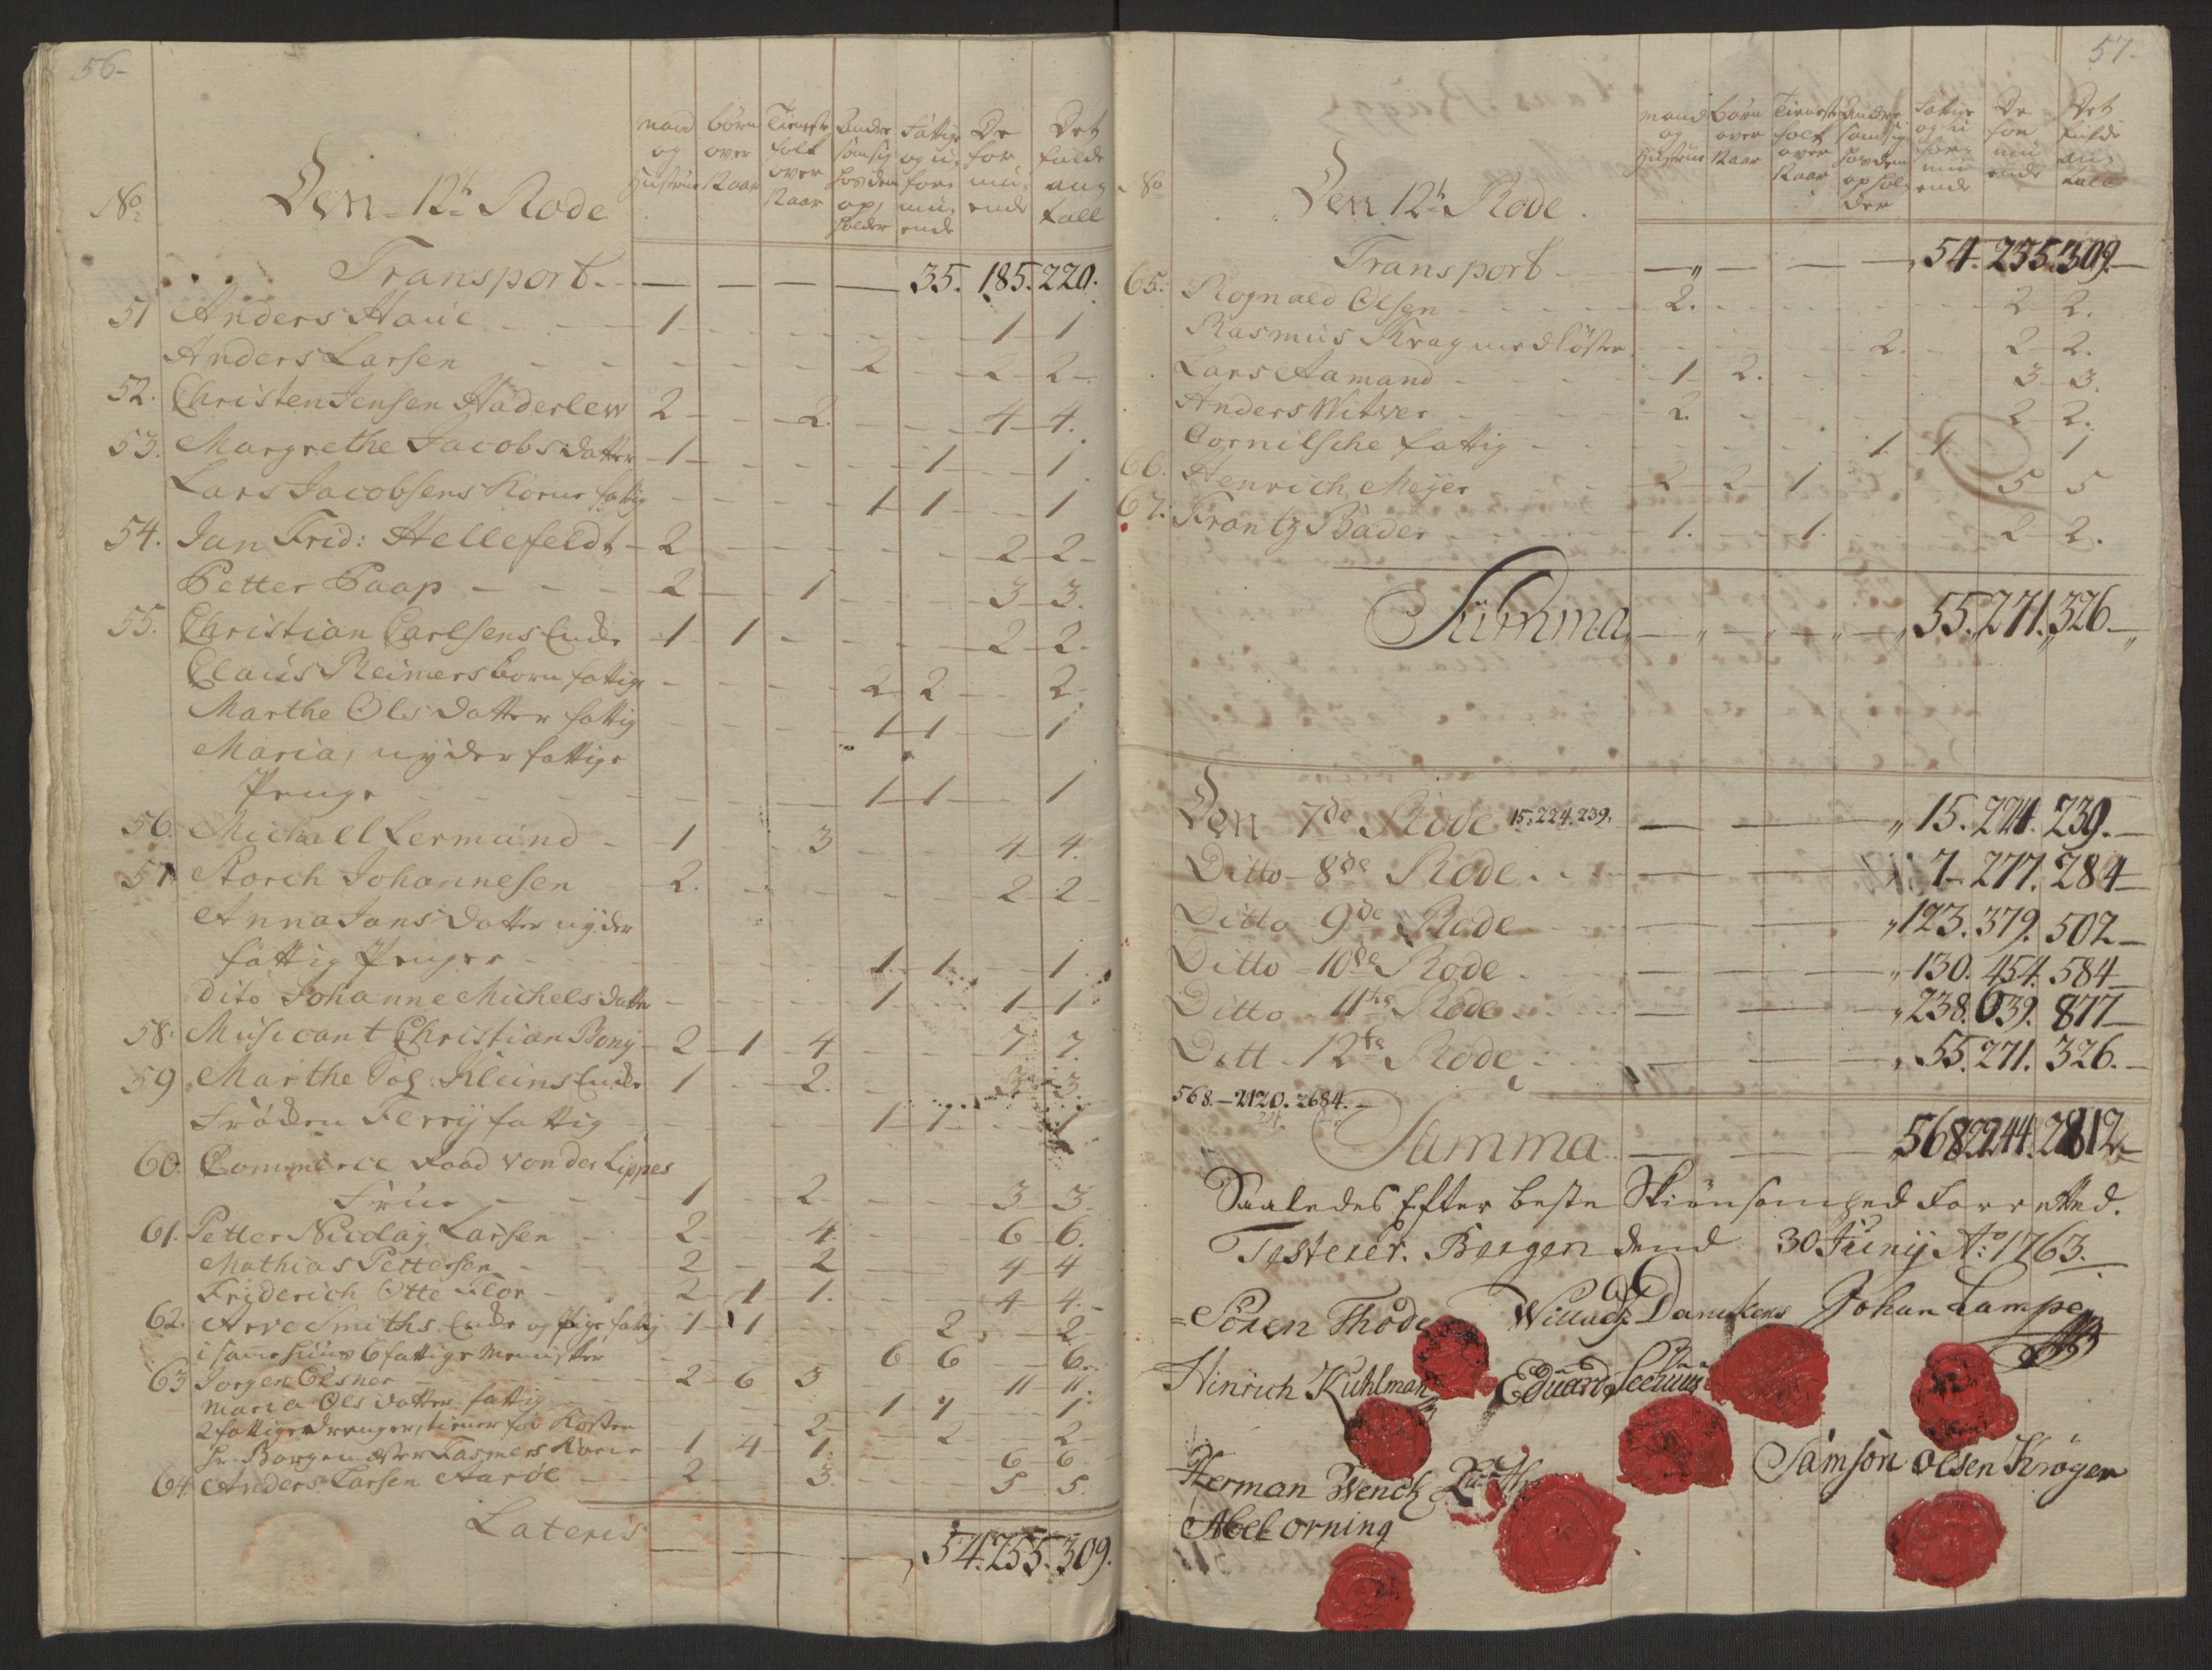 56-
No
Den 12te Rode
mand og Hustrue
børn over 12 aar
Tieneste folk over 12 aar
Andre som sig hos dem opholder
Fattige og u-formuende
De formuende
Det fulde antall
Transport. — — — — 35. 185. 220.
51 Anders Haue 1 1 1
Anders Larsen 2 2 2
52. Christen Jensen Haderlew 2 2. 4 4.
53. Margrethe Jacobsdatter 1 1 1
Lars Jacobsens Kone fattig 1 1 1
54. Jan Frid: Hellefeldt 2 2 2
Petter Paap 2 1 3 3.
55. Christian Carlsens Enke 1 1 2 2.
Claus Reimers born fattige 2 2 2
Marthe Olsdatter fattig 1 1 1
Maria, nyder fattige
Penge 1 1 1
56. Michall Lermund 1 3 4 4.
57 Storch Johannesen 2. 2 2
Anna Jansdatter nyder
fattig Penger 1 1 1
dito Johanne Michelsdatter 1 1 1
58. Musicant Christian Bong 2 1 4 7 7.
59 Marthe Sal Kleins Enke 1 2. 3 3.
Frøken Ferry fattig 1 1 1
60. Commerce Raad von der Lippes
Frue 1 2 3 3.
61. Petter Nicolay Larsen 2 4. 6 6.
Mathias Pettersen 2 2 4 4
Friderich Otte Flor 2 1 1. 4 4.
62. Arve Smiths Enke og pige fattig 1 1 2 2
i samme huus 6 fattige Mennisker 6 6 6.
63 Jorgen Elsner 2 6 3 11 11.
Maria Olsdatter fattig 1 1 1.
2 fattige drenger, tiener for Kosten 2 2 2
Hr Borgemester Fasmers Kone 1 4 1. 6 6
64 Anders Larsen Aarøe 2 3. 5 5.
Lateris — — — 54. 255. 309.
57-
No
Den 12te Rode.
mand og Hustrue
børn over 12 aar
Tieneste folk over 12 aar
Andre som sig hos dem opholder
Fattige og ufor-muende
De formuende
Det fulde antall
Transport — — — — 54. 255. 309.—
65. Rognald Olsen 2. 2 2.
Rasmus Krag med Søster 2. 2 2.
Lars Aamand 1 2. 3 3.
Anders Witwer 2. 2 2.
Cornilsche fattig 1. 1. 1
66. Henrich Meyer 2 2 1 5 5
67. Frantz Bader 1. 1. 2 2.
Summa — — — 55. 271. 326.—
Den 7de Rode 15. 224. 239. — — 15. 224. 239.—
Ditto 8de Rode. — — 7. 277. 284—
Ditto 9de Rode — — 123. 379. 502—
Ditto 10de Rode — — 130. 454. 584—
Ditto 11te Rode — — 238. 639. 877—
Ditt 12te Rode — — 55. 271. 326.—
568.—2120. 2684.—
Summa — — 568. 2244. 2812—
Saaledes Efter beste Skiønsomhed Forretted.
Testerer. Bergen dend 30 Junij Ao: 1763.
Sören Thode Willadz Danckens Johan Lampe
Hinrich Kuhlman Eduard
Herman Wenck Samson Olsen Krøger
Abel orning